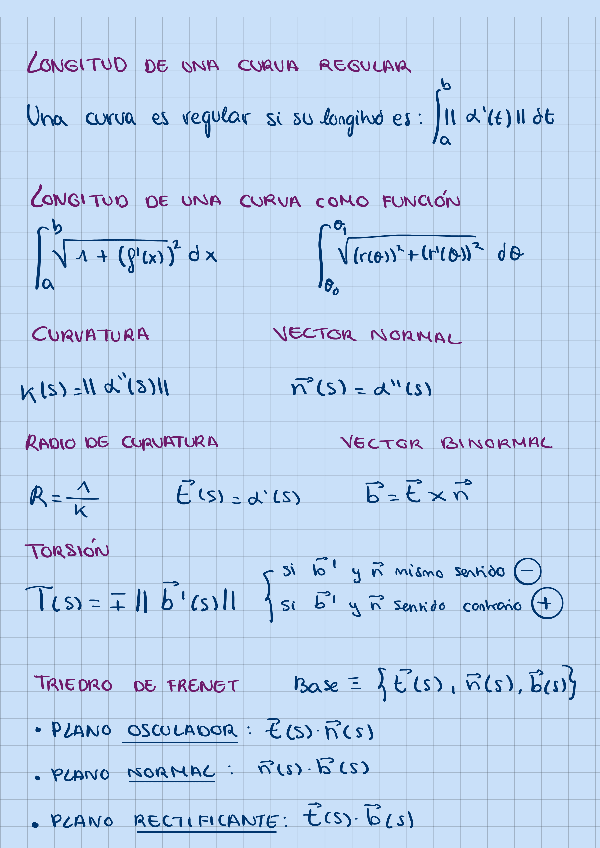 LONGITUD DE UNA CURVA REGULAR
Una curva es regular si su longitud es: ∫_a^b || α'(t) || dt
LONGITUD DE UNA CURVA COMO FUNCIÓN
∫_a^b √(1 + (f'(x))²) dx    ∫_θ₀^θ₁ √((r(θ))² + (r'(θ))²) dθ
CURVATURA    VECTOR NORMAL
K(s) = || α''(s) ||    n⃗(s) = α''(s)
RADIO DE CURVATURA    VECTOR BINORMAL
R = 1/K    t⃗(s) = α'(s)    b⃗ = t⃗ × n⃗
TORSIÓN
T(s) = ∓ || b⃗'(s) || { si b⃗' y n⃗ mismo sentido ⊖
si b⃗' y n⃗ sentido contrario ⊕
TRIEDRO DE FRENET    Base ≡ { t⃗(s), n⃗(s), b⃗(s) }
• PLANO OSCULADOR: t⃗(s)·n⃗(s)
• PLANO NORMAL: n⃗(s)·b⃗(s)
• PLANO RECTIFICANTE: t⃗(s)·b⃗(s)